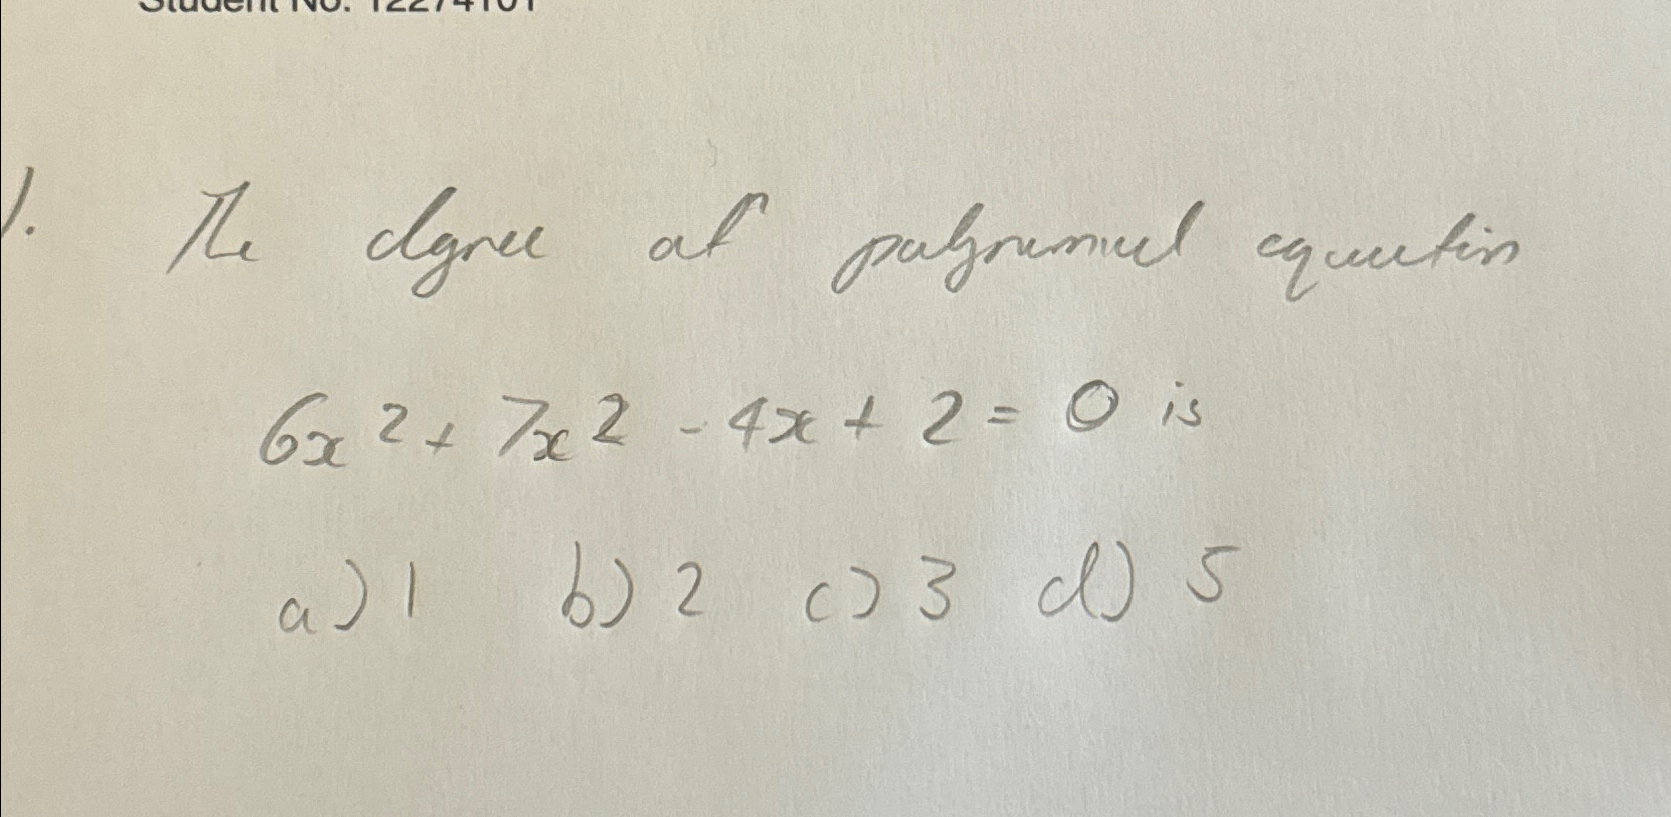 Student No: 12274101
1. The degree of polynomial equation
6x² + 7x² - 4x + 2 = 0 is
a) 1 b) 2 c) 3 d) 5